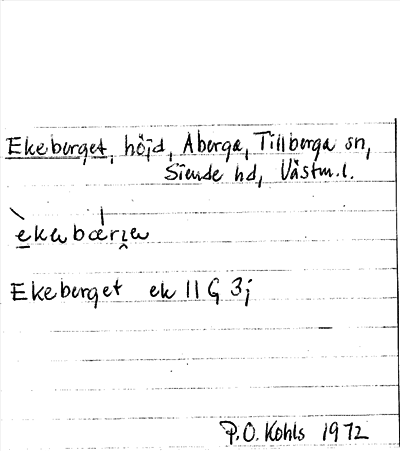 Ekeberget, höjd, Åberga, Tillberga sn,
Siende hd, Västm.l.
Ekeberget ek 11 G 3j
P.O. Kohls 1972